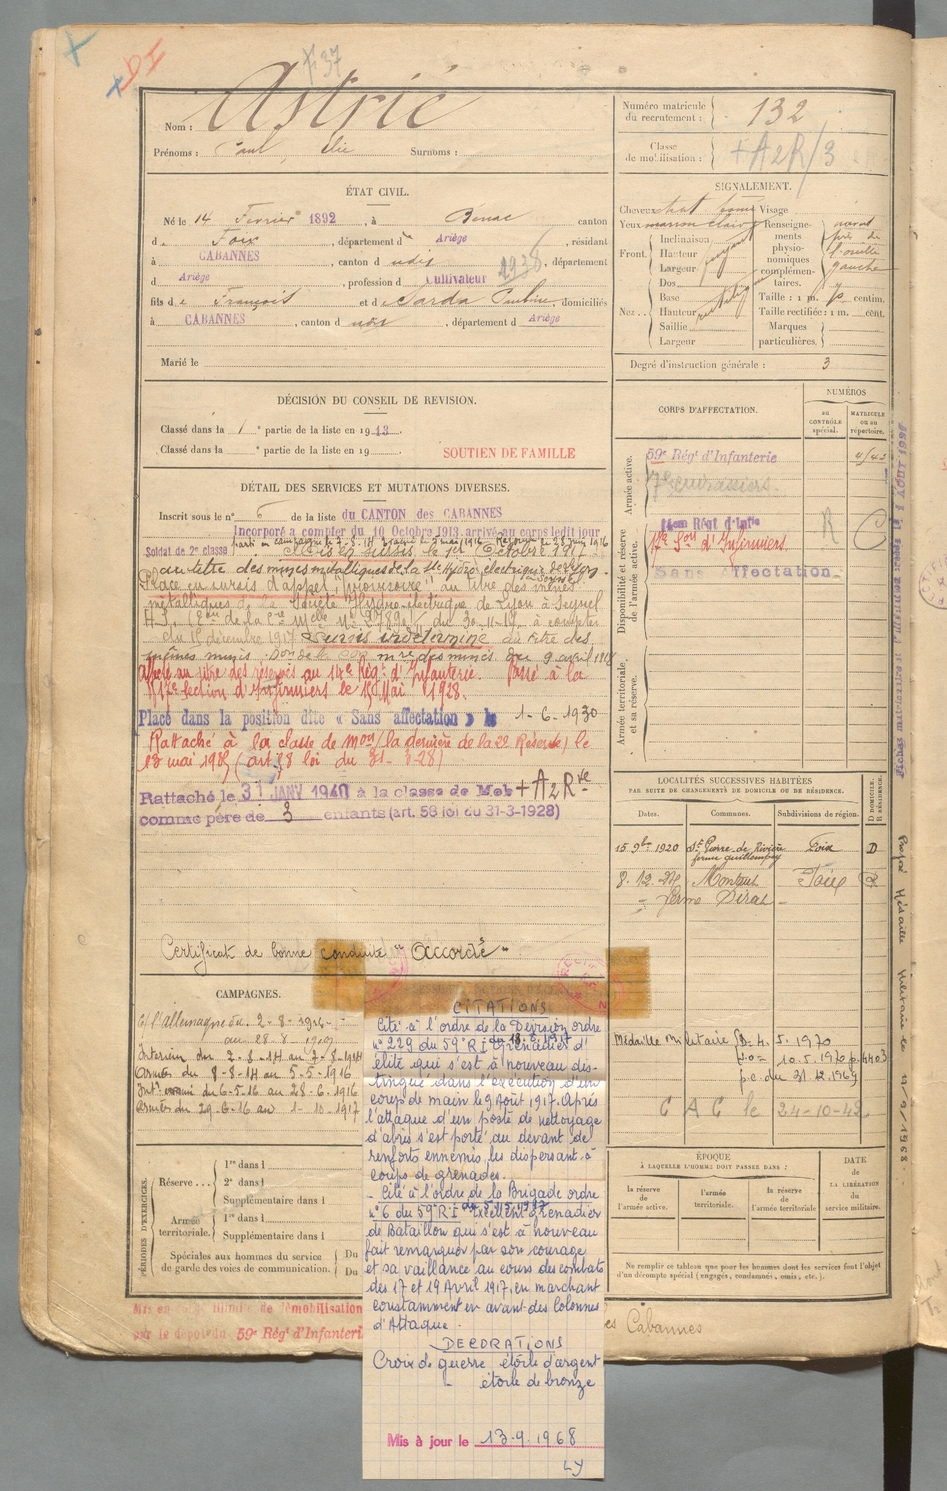 DI
F 37
Nom : Astrié
Prénoms : Paul, Elie Surnoms :
ÉTAT CIVIL.
Né le 14 Février 1892, à Benac canton
de Foix, département de Ariège, résidant
à CABANNES, canton d udis, département
d Ariège, profession d Cultivateur
2938
fils de François et de Sarda Pauline, domiciliés
à CABANNES, canton d udis, département d Ariège
Marié le
DÉCISION DU CONSEIL DE REVISION.
Classé dans la 1e partie de la liste en 1913.
Classé dans la e partie de la liste en 19 .
SOUTIEN DE FAMILLE
DÉTAIL DES SERVICES ET MUTATIONS DIVERSES.
Inscrit sous le n° 6 de la liste du CANTON des CABANNES
Incorporé à compter du 10 Octobre 1913. arrivé au corps ledit jour
Soldat de 2e classe
Mis en sursis le 1er Octobre 1917
au titre des mines métalliques de la Sté Hydro électrique de Lyon
Placé en sursis d'appel, "provisoire" au titre des mines
métalliques de la Société Hydro-électrique de Lyon à
du 15 décembre 1917 Sursis indéterminé au titre des
mêmes mines. des mines du 9 avril 1918
Affecté au titre des réserves au 14e Régt d'Infanterie. Passé à la
17e Section d'Infirmiers le Mai 1928.
Placé dans la position dite « Sans affectation » le 1-6-1930
Rattaché à la classe de mon (la dernière de la 2e Réserve) le
(art 58 loi du 31-3-28)
Rattaché le 31 JANV 1940 à la classe de Mob + A2Rve
comme père de 3 enfants (art. 58 loi du 31-3-1928)
Certificat de bonne conduite "Accordé"
CAMPAGNES.
C/ l'Allemagne du 2-8-1914
au 28-8-1919
Intérieur du 2-8-14 au 7-8-1914
Armées du 8-8-14 au 5-5-1916
Intr du 6-5-16 au 28-6-1916
Armées du 29-6-16 au 1-10-1917
PÉRIODES D'EXERCICES.
Réserve
1re dans l
2e dans l
Supplémentaire dans l
Armée territoriale.
1re dans l
Supplémentaire dans l
Spéciales aux hommes du service de garde des voies de communication.
Du
Du
Mis en congé illimité de démobilisation
sur le dépôt du 59e Régt d'Infanterie
Cabannes
CITATIONS
Cité à l'ordre de la Division ordre
n° 229 du 59e RI Grenadier d'
élite qui s'est à nouveau dis-
tingué dans l'exécution d'un
coup de main le 9 Août 1917. Après
l'attaque d'un poste de nettoyage
d'abris s'est porté au devant de
renforts ennemis les dispersant à
coups de grenades.
- Cité à l'ordre de la Brigade ordre
n° 6 du 59e RI Excellent grenadier
de Bataillon qui s'est à nouveau
fait remarquer par son courage
et sa vaillance au cours des combats
des 17 et 19 Avril 1917, en marchant
constamment en avant des colonnes
d'Attaque.
DECORATIONS
Croix de guerre étoile d'argent
- étoile de bronze
Mis à jour le 13.9.1968
LY
Numéro matricule du recrutement : 132
Classe de mobilisation : +A2R/3
SIGNALEMENT.
Cheveux chat Visage
Yeux marron clair Renseignements physionomiques complémentaires.
Front. Inclinaison
Hauteur
Largeur
Nez... Dos
Base
Hauteur
Saillie
Largeur
l'oreille
gauche
Taille : 1 m. 70 centim.
Taille rectifiée : 1 m. cent.
Marques particulières.
Degré d'instruction générale : 3
CORPS D'AFFECTATION.
NUMÉROS
au CONTRÔLE spécial.
MATRICULE ou au répertoire.
Armée active.
59e Régt d'Infanterie
Disponibilité et réserve de l'armée active.
14em Régt d'Infie
17e Son d'Infirmiers
Sans affectation
R C
Armée territoriale et sa réserve.
LOCALITÉS SUCCESSIVES HABITÉES
PAR SUITE DE CHANGEMENTS DE DOMICILE OU DE RÉSIDENCE.
Dates. Communes. Subdivisions de région. D DOMICILE. R RÉSIDENCE.
15 9bre 1920 St Pierre de Rivière Foix D
8. 12. Montaut Foix R
Ferme
Médaille militaire D. 4. 5. 1970
J.O. 10. 5. 1970 p. 4403
p.c. du 31.12.1969
C A C le 24-10-42
ÉPOQUE
À LAQUELLE L'HOMME DOIT PASSER DANS :
DATE de LA LIBÉRATION du service militaire.
la réserve de l'armée active.
l'armée territoriale.
la réserve de l'armée territoriale
Ne remplir ce tableau que pour les hommes dont les services font l'objet
d'un décompte spécial (engagés, condamnés, omis, etc.).